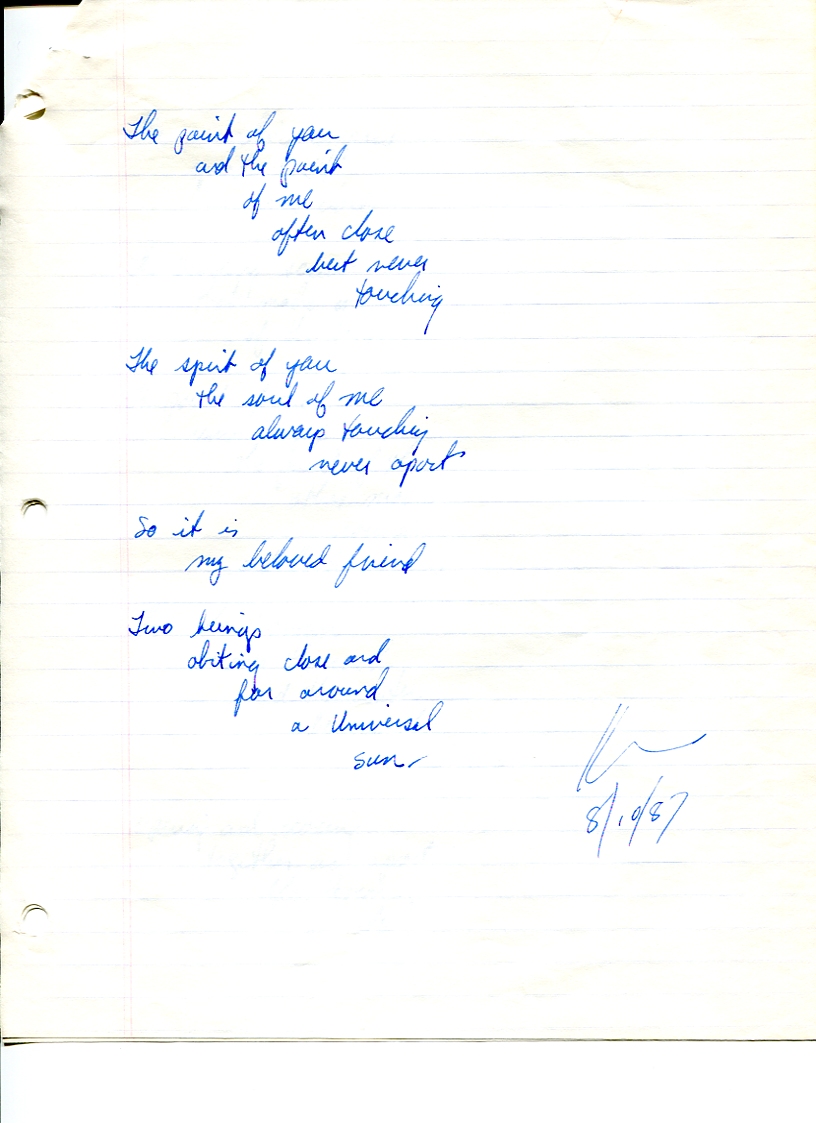 The point of you
and the point
of me
often close
but never
touching
The spirit of you
the soul of me
always touching
never apart
So it is
my beloved friend
Two beings
obiting close and
far around
a Universal
sun
8/10/87